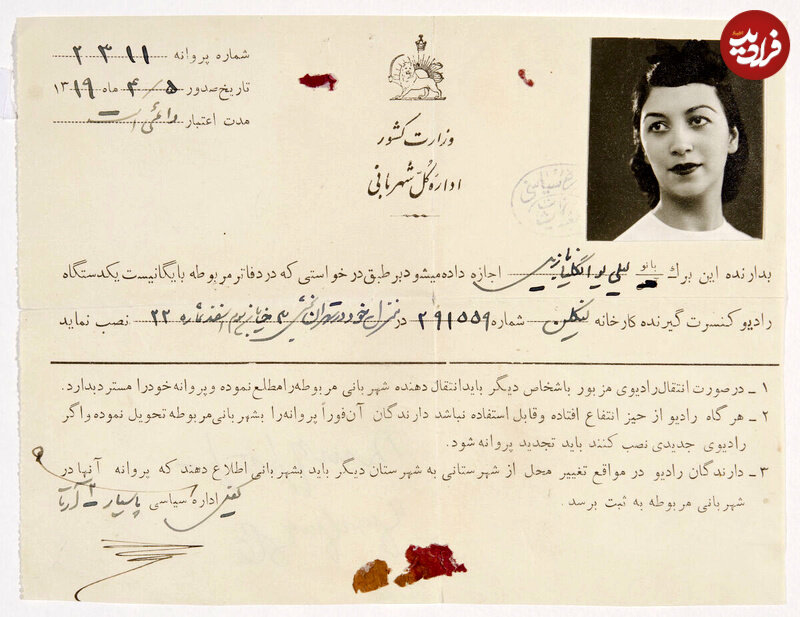 فرادید
اخبار
شماره پروانه ۲۳۱۱
تاریخ صدور ۵/۴ ماه ۱۳۱۹
مدت اعتبار دائمی است
وزارت کشور
ادارهٔ کل شهربانی
بدارنده این برگ بانو لیلی اجازه داده میشود بر طبق درخواستی که در دفاتر مربوطه بایگانیست یکدستگاه
رادیو کنسرت گیرنده کارخانه شماره ۲۹۱۵۵۹ در منزل خود در تهران شماره ۲۲ نصب نماید
۱ ـ درصورت انتقال رادیوی مزبور باشخاص دیگر باید انتقال دهنده شهربانی مربوطه را مطلع نموده و پروانه خود را مسترد بدارد.
۲ ـ هر گاه رادیو از حیز انتفاع افتاده وقابل استفاده نباشد دارندگان آن فوراً پروانه را بشهربانی مربوطه تحویل نموده واگر
رادیوی جدیدی نصب کنند باید تجدید پروانه شود.
۳ ـ دارندگان رادیو در مواقع تغییر محل از شهرستانی به شهرستان دیگر باید بشهربانی اطلاع دهند که پروانه آنها در
شهربانی مربوطه به ثبت برسد.
اداره سیاسی پاسیار